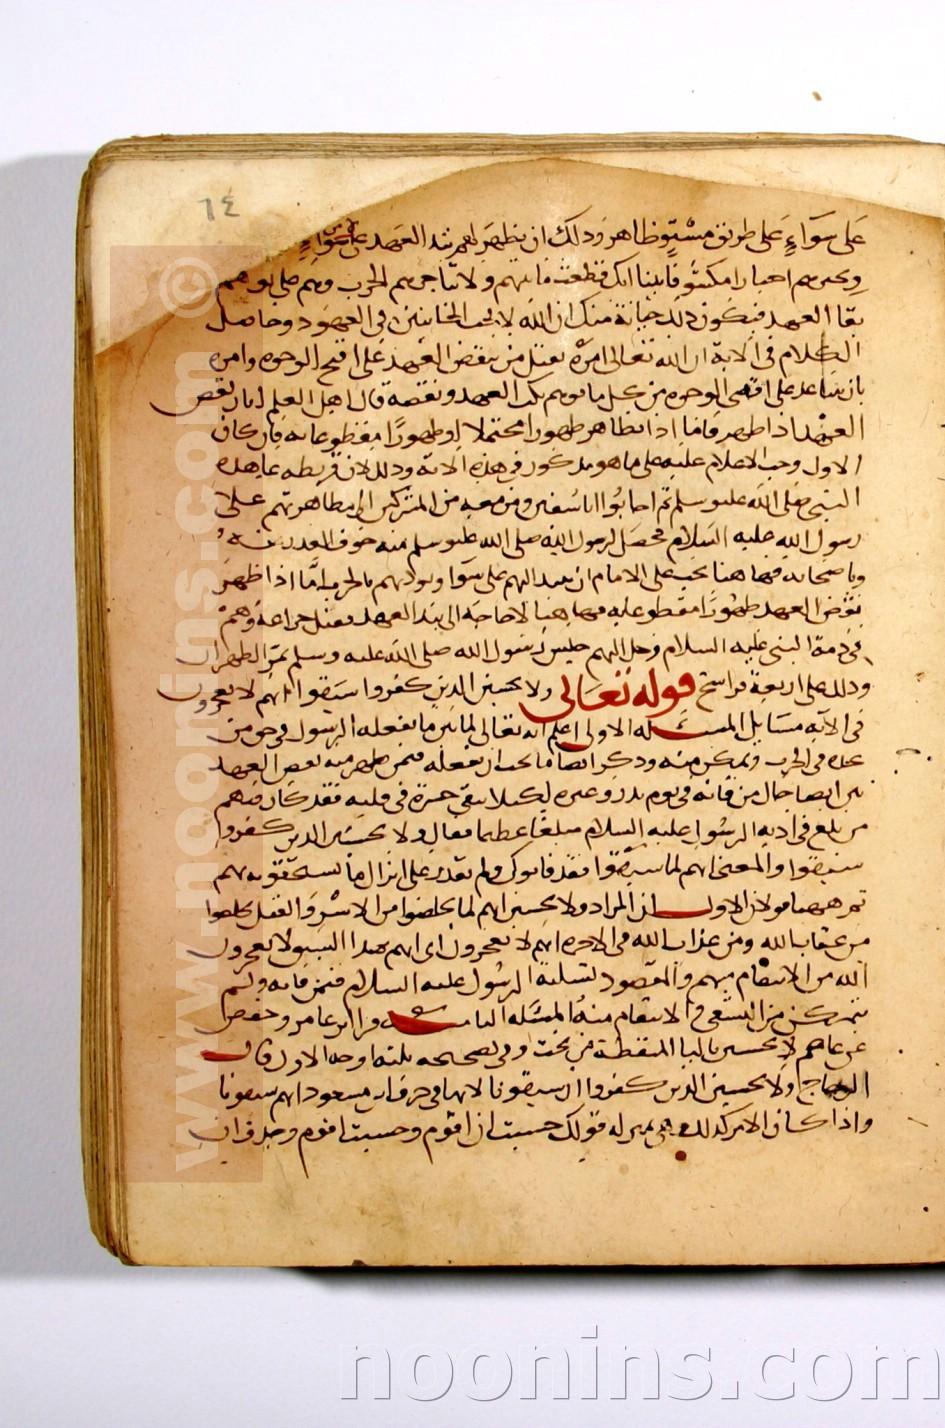 ٦٤
على سواءٍ على طريق مستوٍ ظاهر وذلك ان يظهر لهم نبذ العهد على سواءٍ
ويخبرهم اخبارا مكشوفا بينا انك قطعت ما بينهم ولا تناجزهم الحرب وهم على توهم
بقا العهد فيكون ذلك خيانة منك ان الله لا يحب الخاينين في العهود وحاصل
الكلام في الاية ان الله تعالى امره بقتل من ينقض العهد على اقبح الوجوه وامره
بان يتباعد على اقصى الوجوه من كل ما يوهم نكث العهد ونقضه قال اهل العلم اثار نقض
العهد اذا ظهر فاما اذا يظاهر ظهورا محتملا او ظهورًا مقطوعا به فان كان
الاول وجب الاعلام عليه على ما هو مذكور في هذه الاية وذلك لان قريظه عاهدو
النبى صلى الله عليه وسلم ثم اجابوا ابا سفين ومن معه من المشركين الى مظاهرتهم على
رسول الله عليه السلام فحصل لرسول الله صلى الله عليه وسلم منه خوف الغدر به
وباصحابه فها هنا يجب على الامام ان ينبذ اليهم على سوا ويوذنهم بالحرب امّا اذا ظهر
نقض العهد ظهورًا مقطوعا به فها هنا لا حاجة الى نبذ العهد كما فعل خزاعة وهم
في ذمة النبى عليه السلام وصل اليهم جيش رسول الله صلى الله عليه وسلم بمر الظهران
وذلك على اربعة فراسخ قوله تعالى ولا يحسبن الذين كفروا سبقوا انهم لا يعجزون
فى الآية مسايل المسئله الاولى اعلم انه تعالى لما بين ما يفعله الرسول في حق من
يجده في الحرب ويتمكن منه وذكر ايضا ما يجب ان يفعله فيمن ظهر منه نقض العهد
بين ايضا حال من فاته في يوم بدر وغيره لكيلا يبقى حسرة في قلبه فقد كان فيهم
من بلغ في اذية الرسول عليه السلام مبلغا عظيما فقال ولا يحسبن الذين كفروا
سبقوا والمعنى انهم لما سبقوا فقد فاتوك ولم تقدر على انزال ما يستحقونه بهم
ثم ههنا قولان الاول ان المراد ولا يحسبن انهم لما تخلصوا من الاسر والقتل تخلصوا
من عقاب الله ومن عذاب الله في الاخره انهم لا يعجزون اى انهم بهذا السبق لا يعجزون
الله من الانتقام منهم والمقصود تسلية الرسول عليه السلام فيمن فاته ولم
يتمكن من التشفي والانتقام منه المسئله الثانيه قرا ابن عامر وحفص
عن عاصم لا يحسبن باليا المنقطة من تحت وفي تصحيحه ثلثه اوجه الاول قال
الزجاج ولا يحسبن الذين كفروا ان سبقونا لانها في حرف ابن مسعود انهم سبقونا
واذا كان الامر كذلك فهي بمنزلة قولك حسبت ان اقوم وحسبت اقوم وحذف ان
www.noonins.com ©
noonins.com